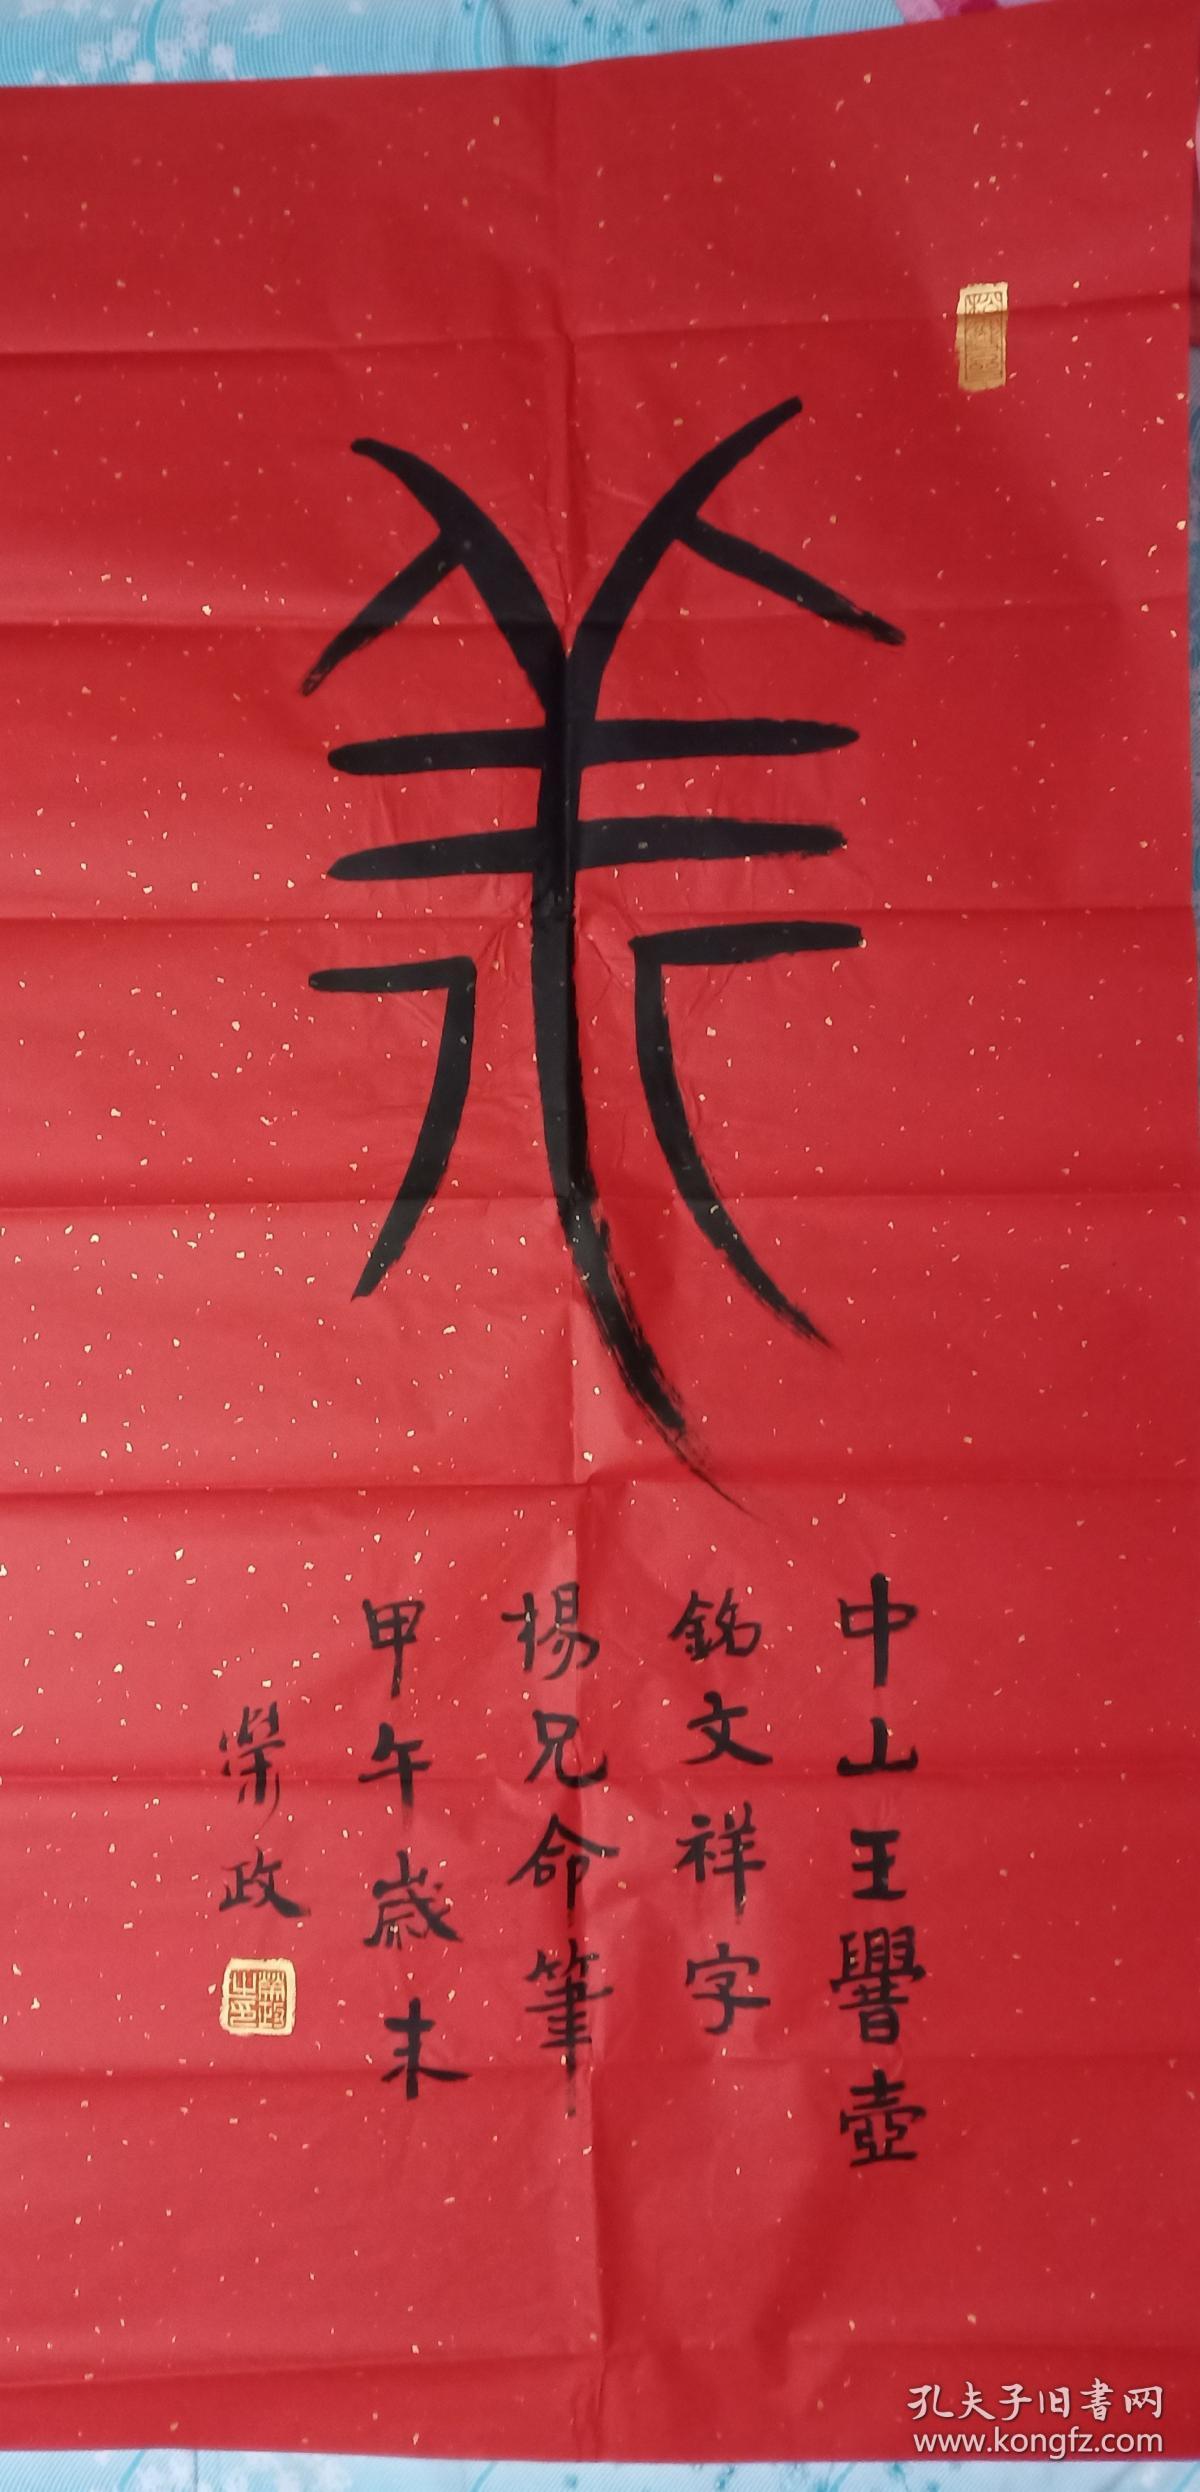 祥
中山王譽壺
銘文祥字
楊兄命筆
甲午歲末
榮政
孔夫子旧書网
www.kongfz.com